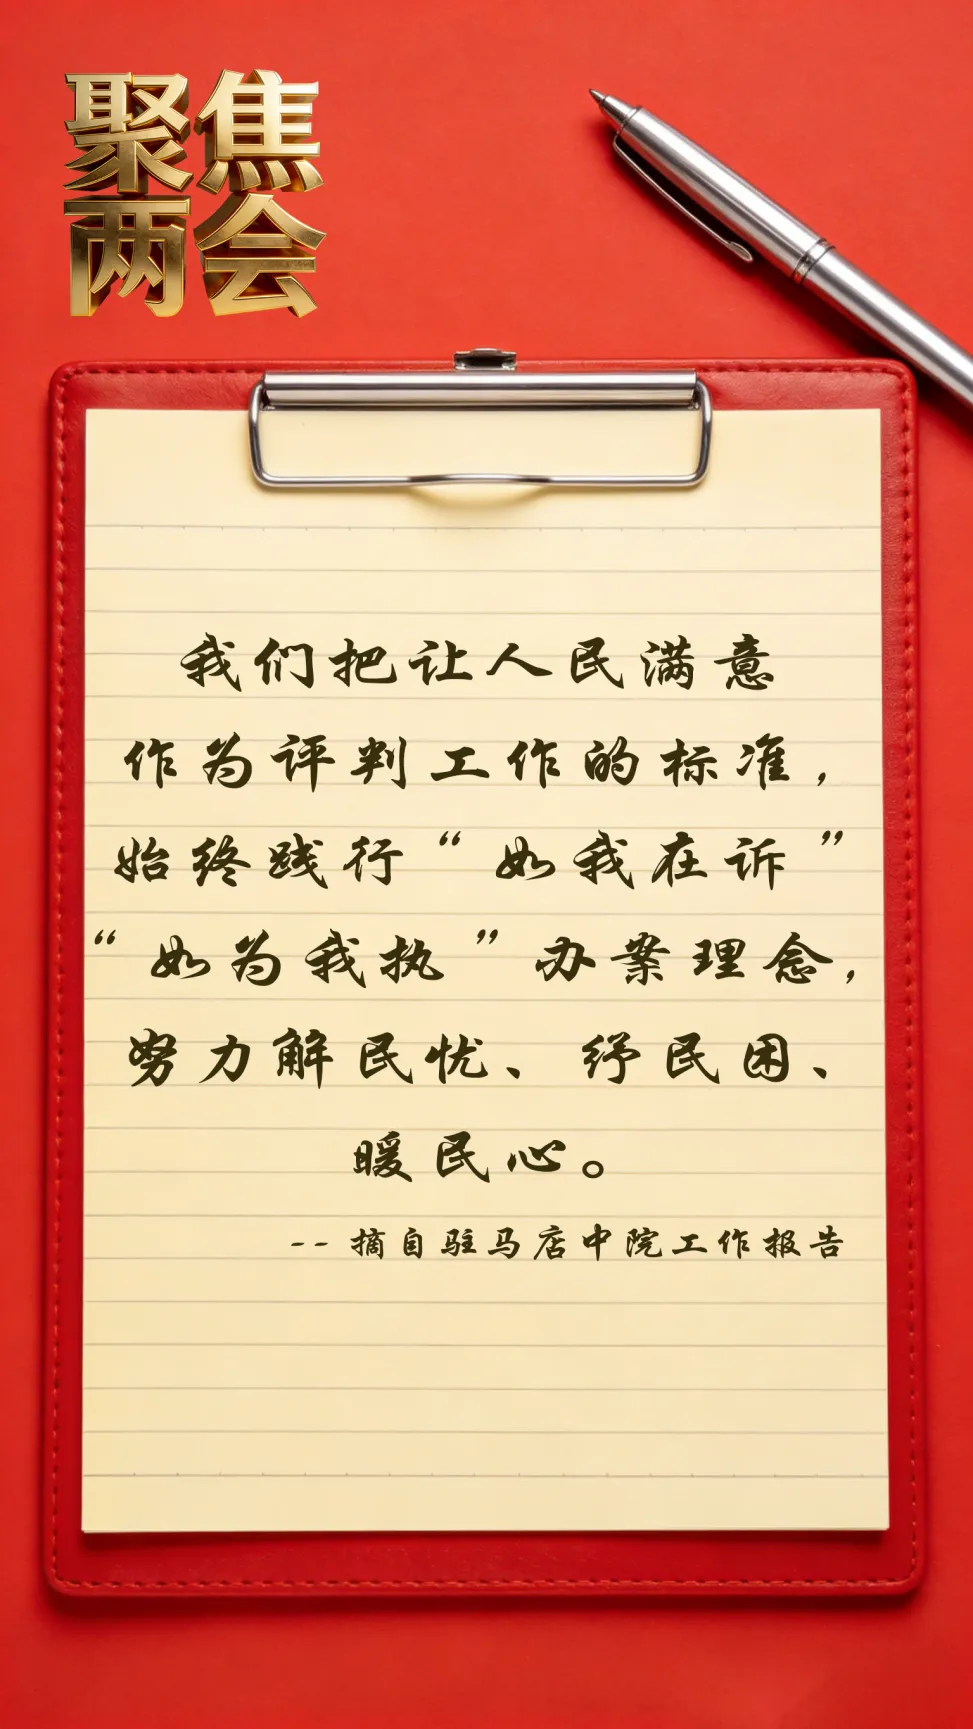 聚焦
两会
我们把让人民满意
作为评判工作的标准，
始终践行“如我在诉”
“如为我执”办案理念，
努力解民忧、纾民困、
暖民心。
--摘自驻马店中院工作报告